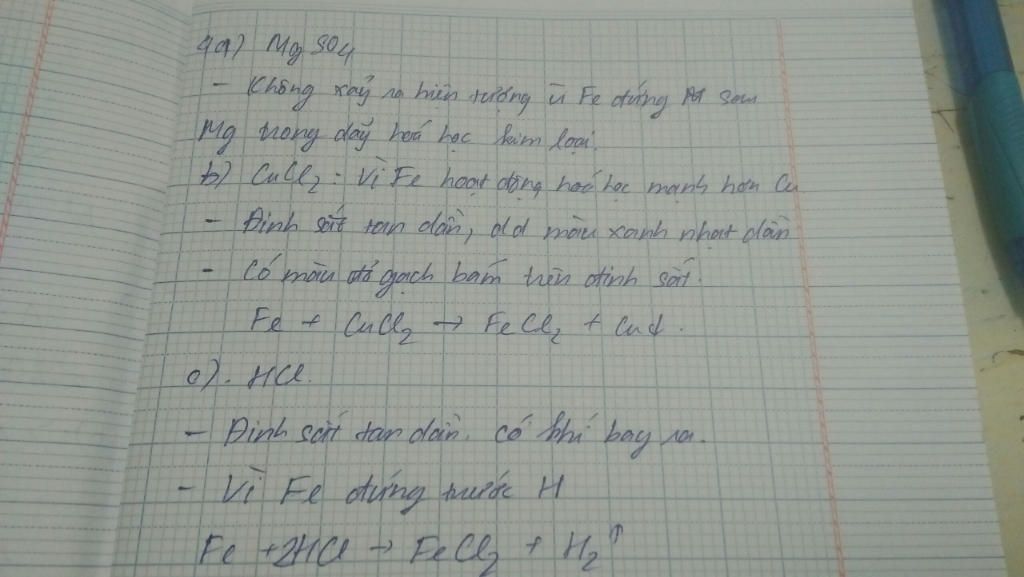 4a) MgSO4
- Không xảy ra hiện tượng vì Fe đứng sau
Mg trong dãy hoá học kim loại.
b) CuCl2: Vì Fe hoạt động hoá học mạnh hơn Cu
- Đinh sắt tan dần, dd màu xanh nhạt dần
- Có màu đỏ gạch bám trên đinh sắt.
Fe + CuCl2 → FeCl2 + Cu↓.
c). HCl.
- Đinh sắt tan dần. có khí bay ra.
- Vì Fe đứng trước H
Fe + 2HCl → FeCl2 + H2↑